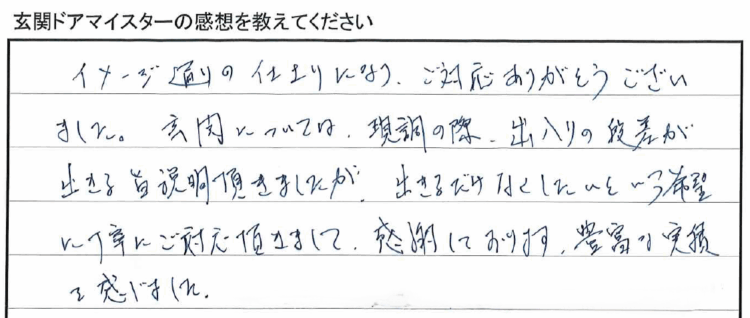 玄関ドアマイスターの感想を教えてください
イメージ通りの仕上りになり、ご対応ありがとうござい
ました。玄関については、現調の際、出入りの段差が
出きる旨説明頂きましたが、出きるだけなくしたいという希望
に丁寧にご対応頂きまして、感謝しております。豊富な実績
を感じました。